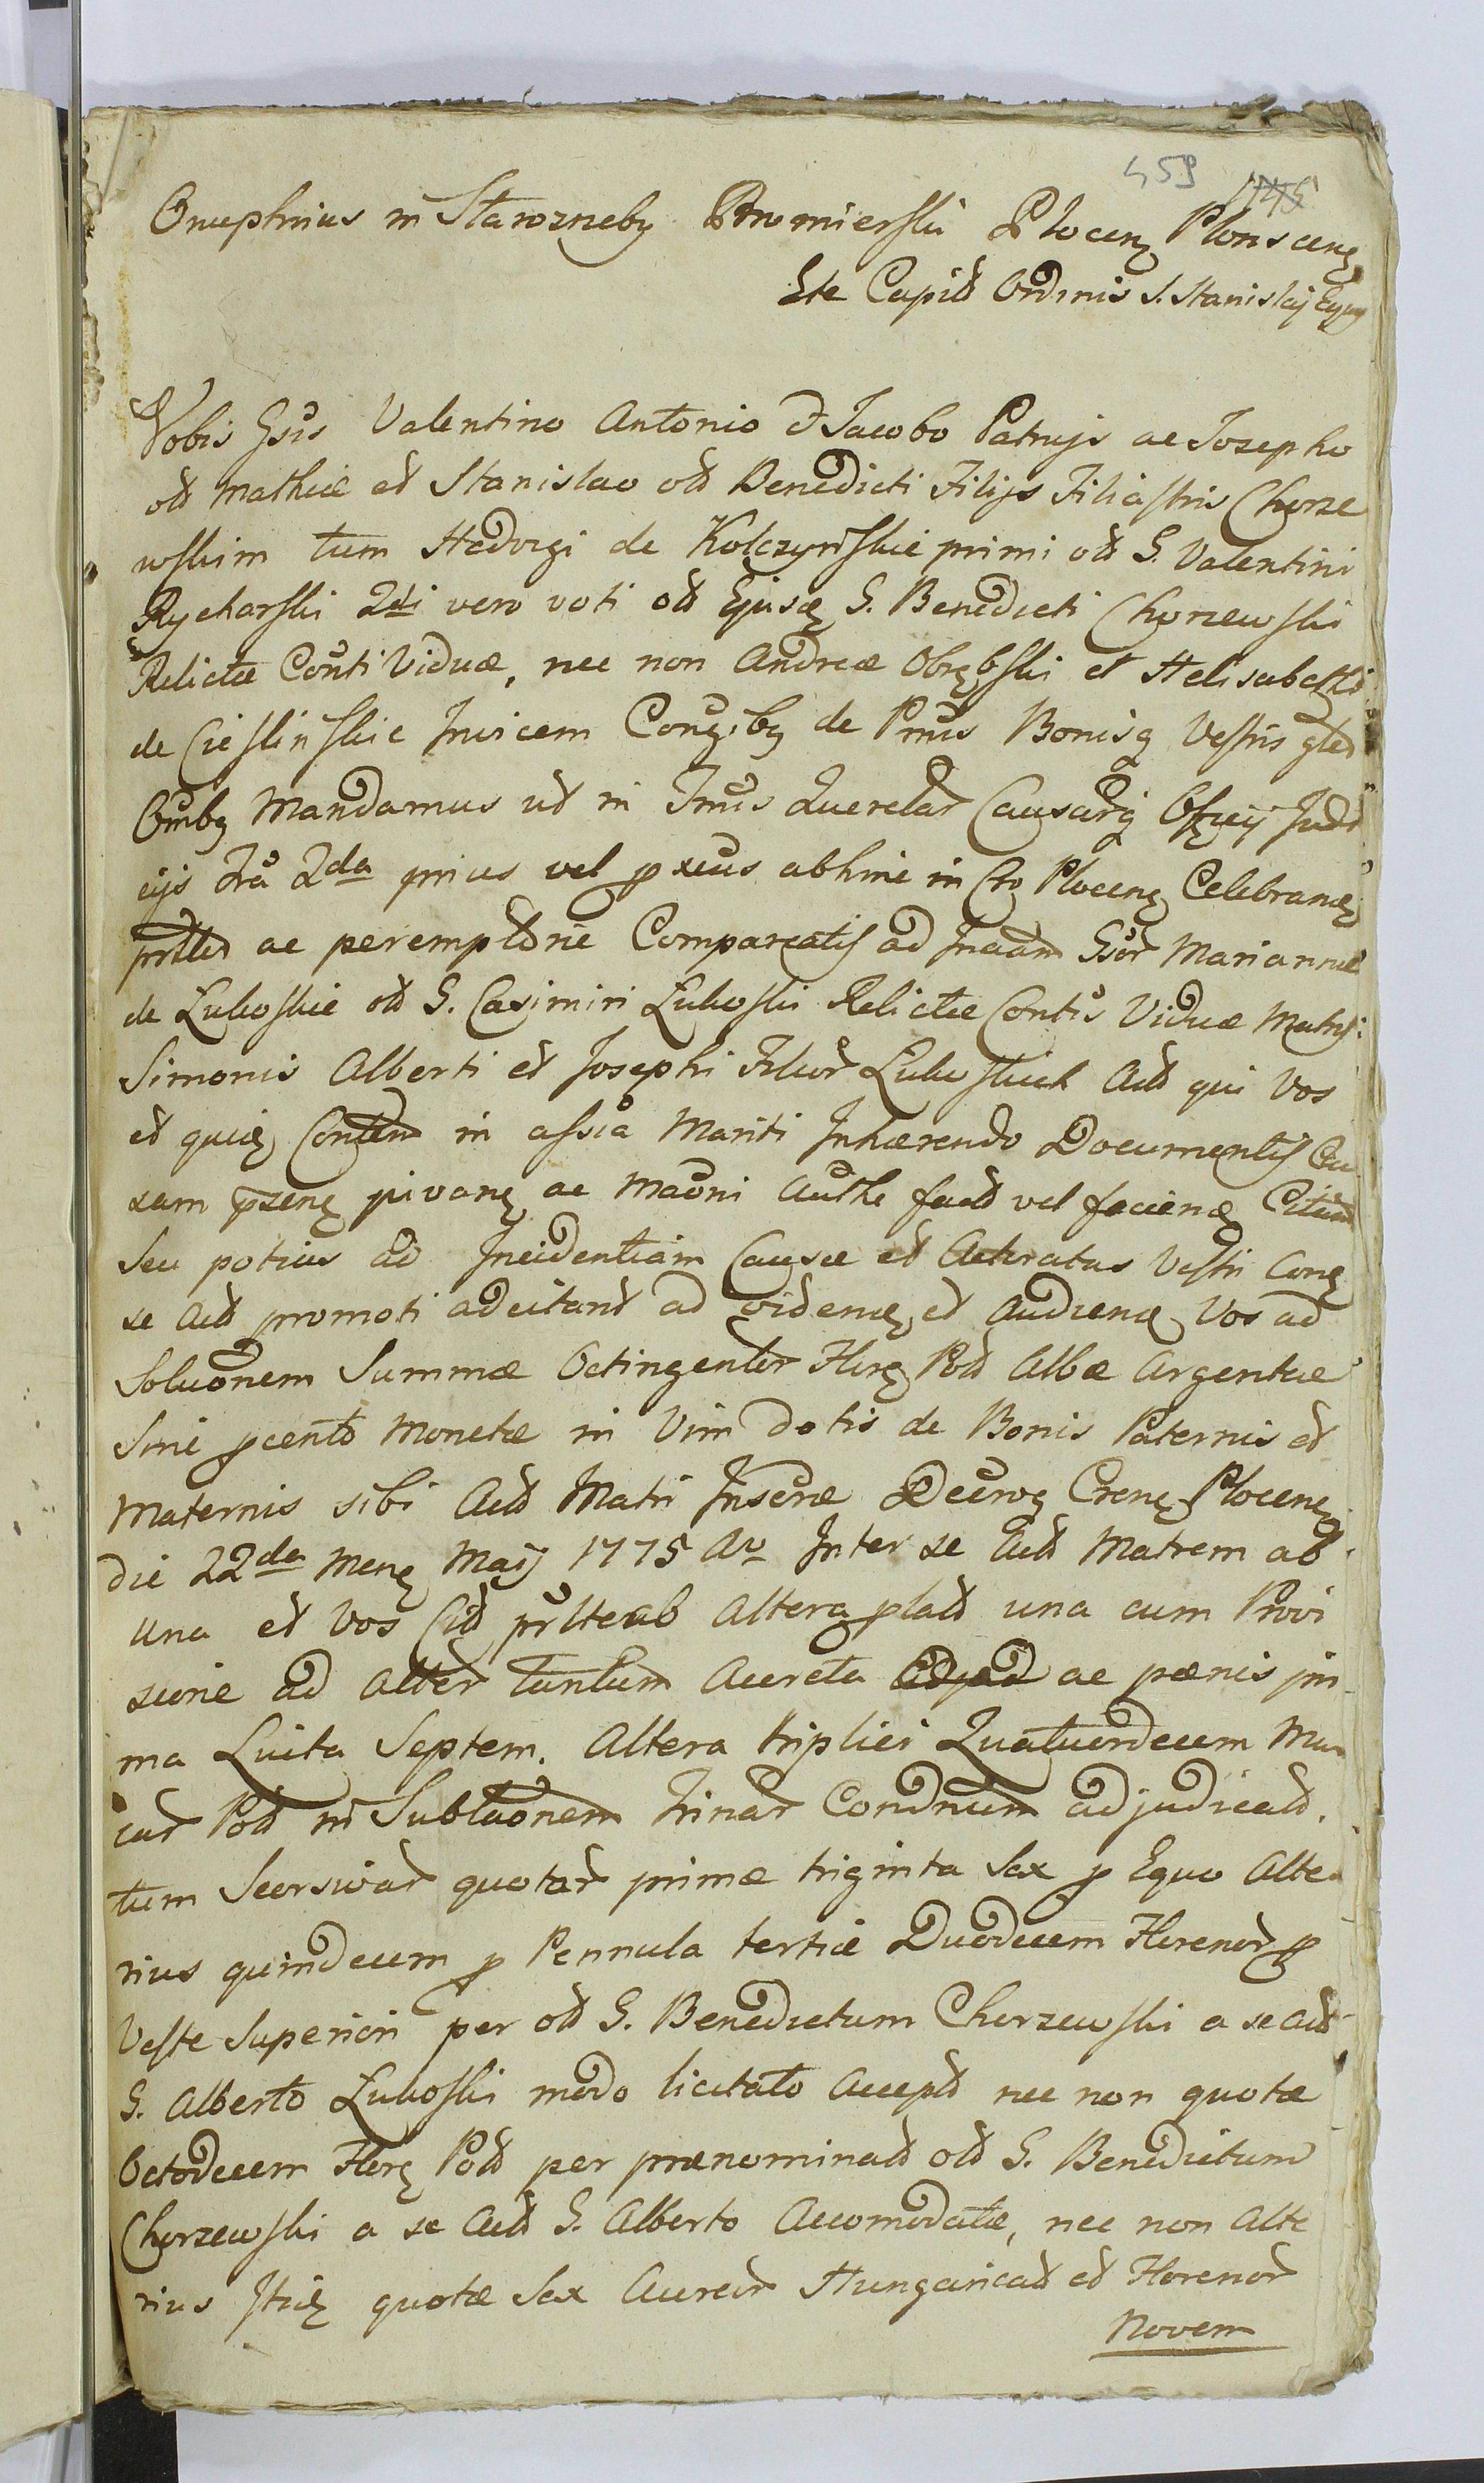 459 1745
Onuphrius in Starozreby Bromierski Plocen Plonscen
Ste Capit Ordinis S. Stanislaj Eques
Vobis Gsis Valentino Antonio & Jacobo Patruis ac Josepho
olt Mathiæ et Stanislao olt Benedicti Filijs Filiastris Chorze
wskim tum Hedvigi de Kolczynskie primi olt G. Valentini
Rycharski 2di vero voti olt Ejusq G. Benedicti Chorzewski
Relictæ Conti Viduæ, nec non Andreæ Obrębski et Helisabethi
de Cieslinskie Invicem Congibq de Pnis Bonisq Vestris glt
Omibq Mandamus ut in Tmis Querelar Causarq Officij Judi
cijs Fra 2da prius vel pxeus abhinc in Cto Plocenq Celebranq
prltr ac peremptorie Compareatis ad Jnaam Gsor Mariannæ
de Lukoskie olt G. Casimiri Lukoski Relictæ Contis Viduæ Matris
Simonis Alberti et Josephi Filior Lukoskich Act qui Vos
et quiq Conten in assia Mariti Jnhærendo Documentis Cau
sam pzenq pivanq ac Maoni Authe fact vel facienq Citant
Seu potius ad Jncidentiam Causæ et Acteratus Vestri Conq
se Act promoti adcitant ad videnq et audienq Vos ad
Solvonem Summæ Octingentor Florq Pol Albæ Argenteæ
Sine pcento Monetæ in Vim dotis de Bonis Paternis et
Maternis sibi Act Matri Jnscriæ Decrog Crenq Plocenq
die 22da Menq Maij 1775 Ao Jnter se Act Matrem ab
una et Vos Cit prlteab Altera plat una cum Provi
sione ad alter tantum Accreta ac pænis pri
ma Luita Septem. Altera triplici Quatuordecem Mar
car Pol in Subluonem trinar Condnum adjudicat.
tum Seorsivar quotar primæ triginta Sex p Equo Alte
rius quindecem p Pennula tertiæ Duodecem Florenor p
Veste Superiori per olt G. Benedictum Chorzewski a se Act
G. Alberto Lukoski modo licitato Accept nec non quotæ
Octodecem Florq Pol per prænominat olt G. Benedictum
Chorzewski a se Act G. Alberto Accomodatæ, nec non Alte
rius Jtiq quotæ Sex Aureor Hungaricat et Florenor
Novem